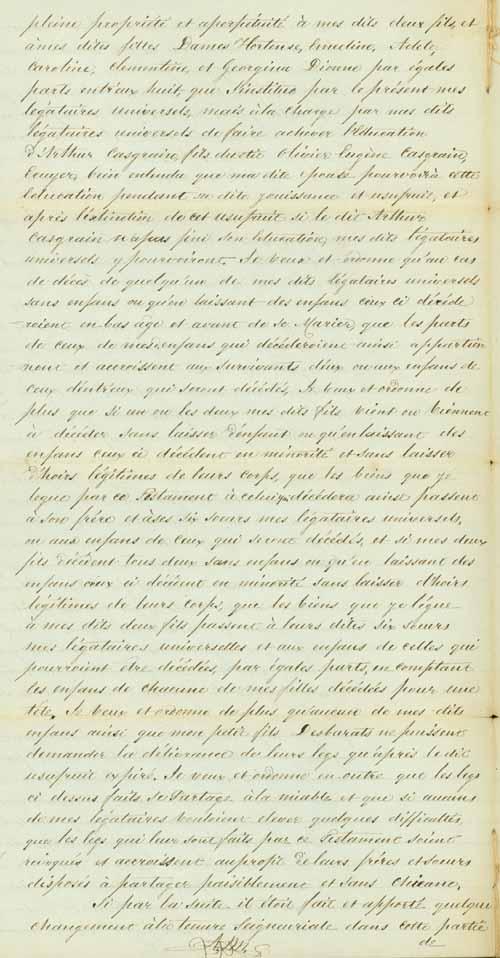 pleine propriété et aperpétuité à mes dits deux fils, et
à mes dites filles Dames Hortense, Emeline, Adèle,
Caroline, Clementine, et Georgina Dionne par égales
parts entr'aux huit, que J'institue par le présent mes
légataires universels, mais à la charge par mes dits
légataires universels de faire achever l'Education
d'Arthur Casgrain, fils du Olivier Eugène Casgrain,
Ecuyer, bien entendu que ma dite épouse pourvoira cette
Education pendant sa dite jouissance et usufruit, et
après l'extinction de cet usufruit si le dit Arthur
Casgrain n'a pas fini son Education, mes dits légataires
universels y pourvoiront. Je veux et ordonne qu'au cas
de décès de quelqu'un de mes dits légataires universels
sans enfans ou qu'en laissant des enfans ceux ci décède
roient en bas âge et avant de se Marier, que les parts
de ceux de mes enfans qui décèderoient ainsi appartien
nent et accroissent aux survivants d'eux ou aux enfans de
ceux d'entr'eux qui seront décédés, Je veux et ordonne de
plus que si un ou les deux mes dits fils vient ou viennent
à décéder sans laisser d'enfant ou qu'en laissant des
enfans ceux ci décèdent en minorité et sans laisser
d'hoirs légitimes de leurs corps, que les biens que je
legue par ce Testament à celui décédera ainsi passent
à son frère et à ses six sœurs mes légataires universels,
ou aux enfans de ceux qui seront décédés, et si mes deux
fils décèdent tous deux sans enfans ou qu'en laissant des
enfans ceux ci décèdent en minorité sans laisser d'hoirs
légitimes de leurs corps, que les biens que je lègue
à mes dits deux fils passent à leurs dites six sœurs
mes légataires universelles et aux enfans de celles qui
pourroient etre décédées, par égales parts, en comptant
les enfans de chacune de mes filles décédées pour une
tête. Je veux et ordonne de plus qu'aucun de mes dits
enfans ainsi que mon petit fils Desbarats ne puissent
demander la délivrance de leurs legs qu'après le dit
usufruit expiré. Je veux et ordonne en outre que les legs
ci dessus faits se Partage à la miable et que si aucuns
de mes légataires vouloient elever quelques difficultés,
que les legs qui leur sont faits par ce Testament soient
révoqués et accroissent au profit de leurs frères et sœurs
disposés à partager paisiblement et sans chicane.
Si par la suite il étoit fait et apporté quelque
changement à la tenure Seigneuriale dans cette partie
de